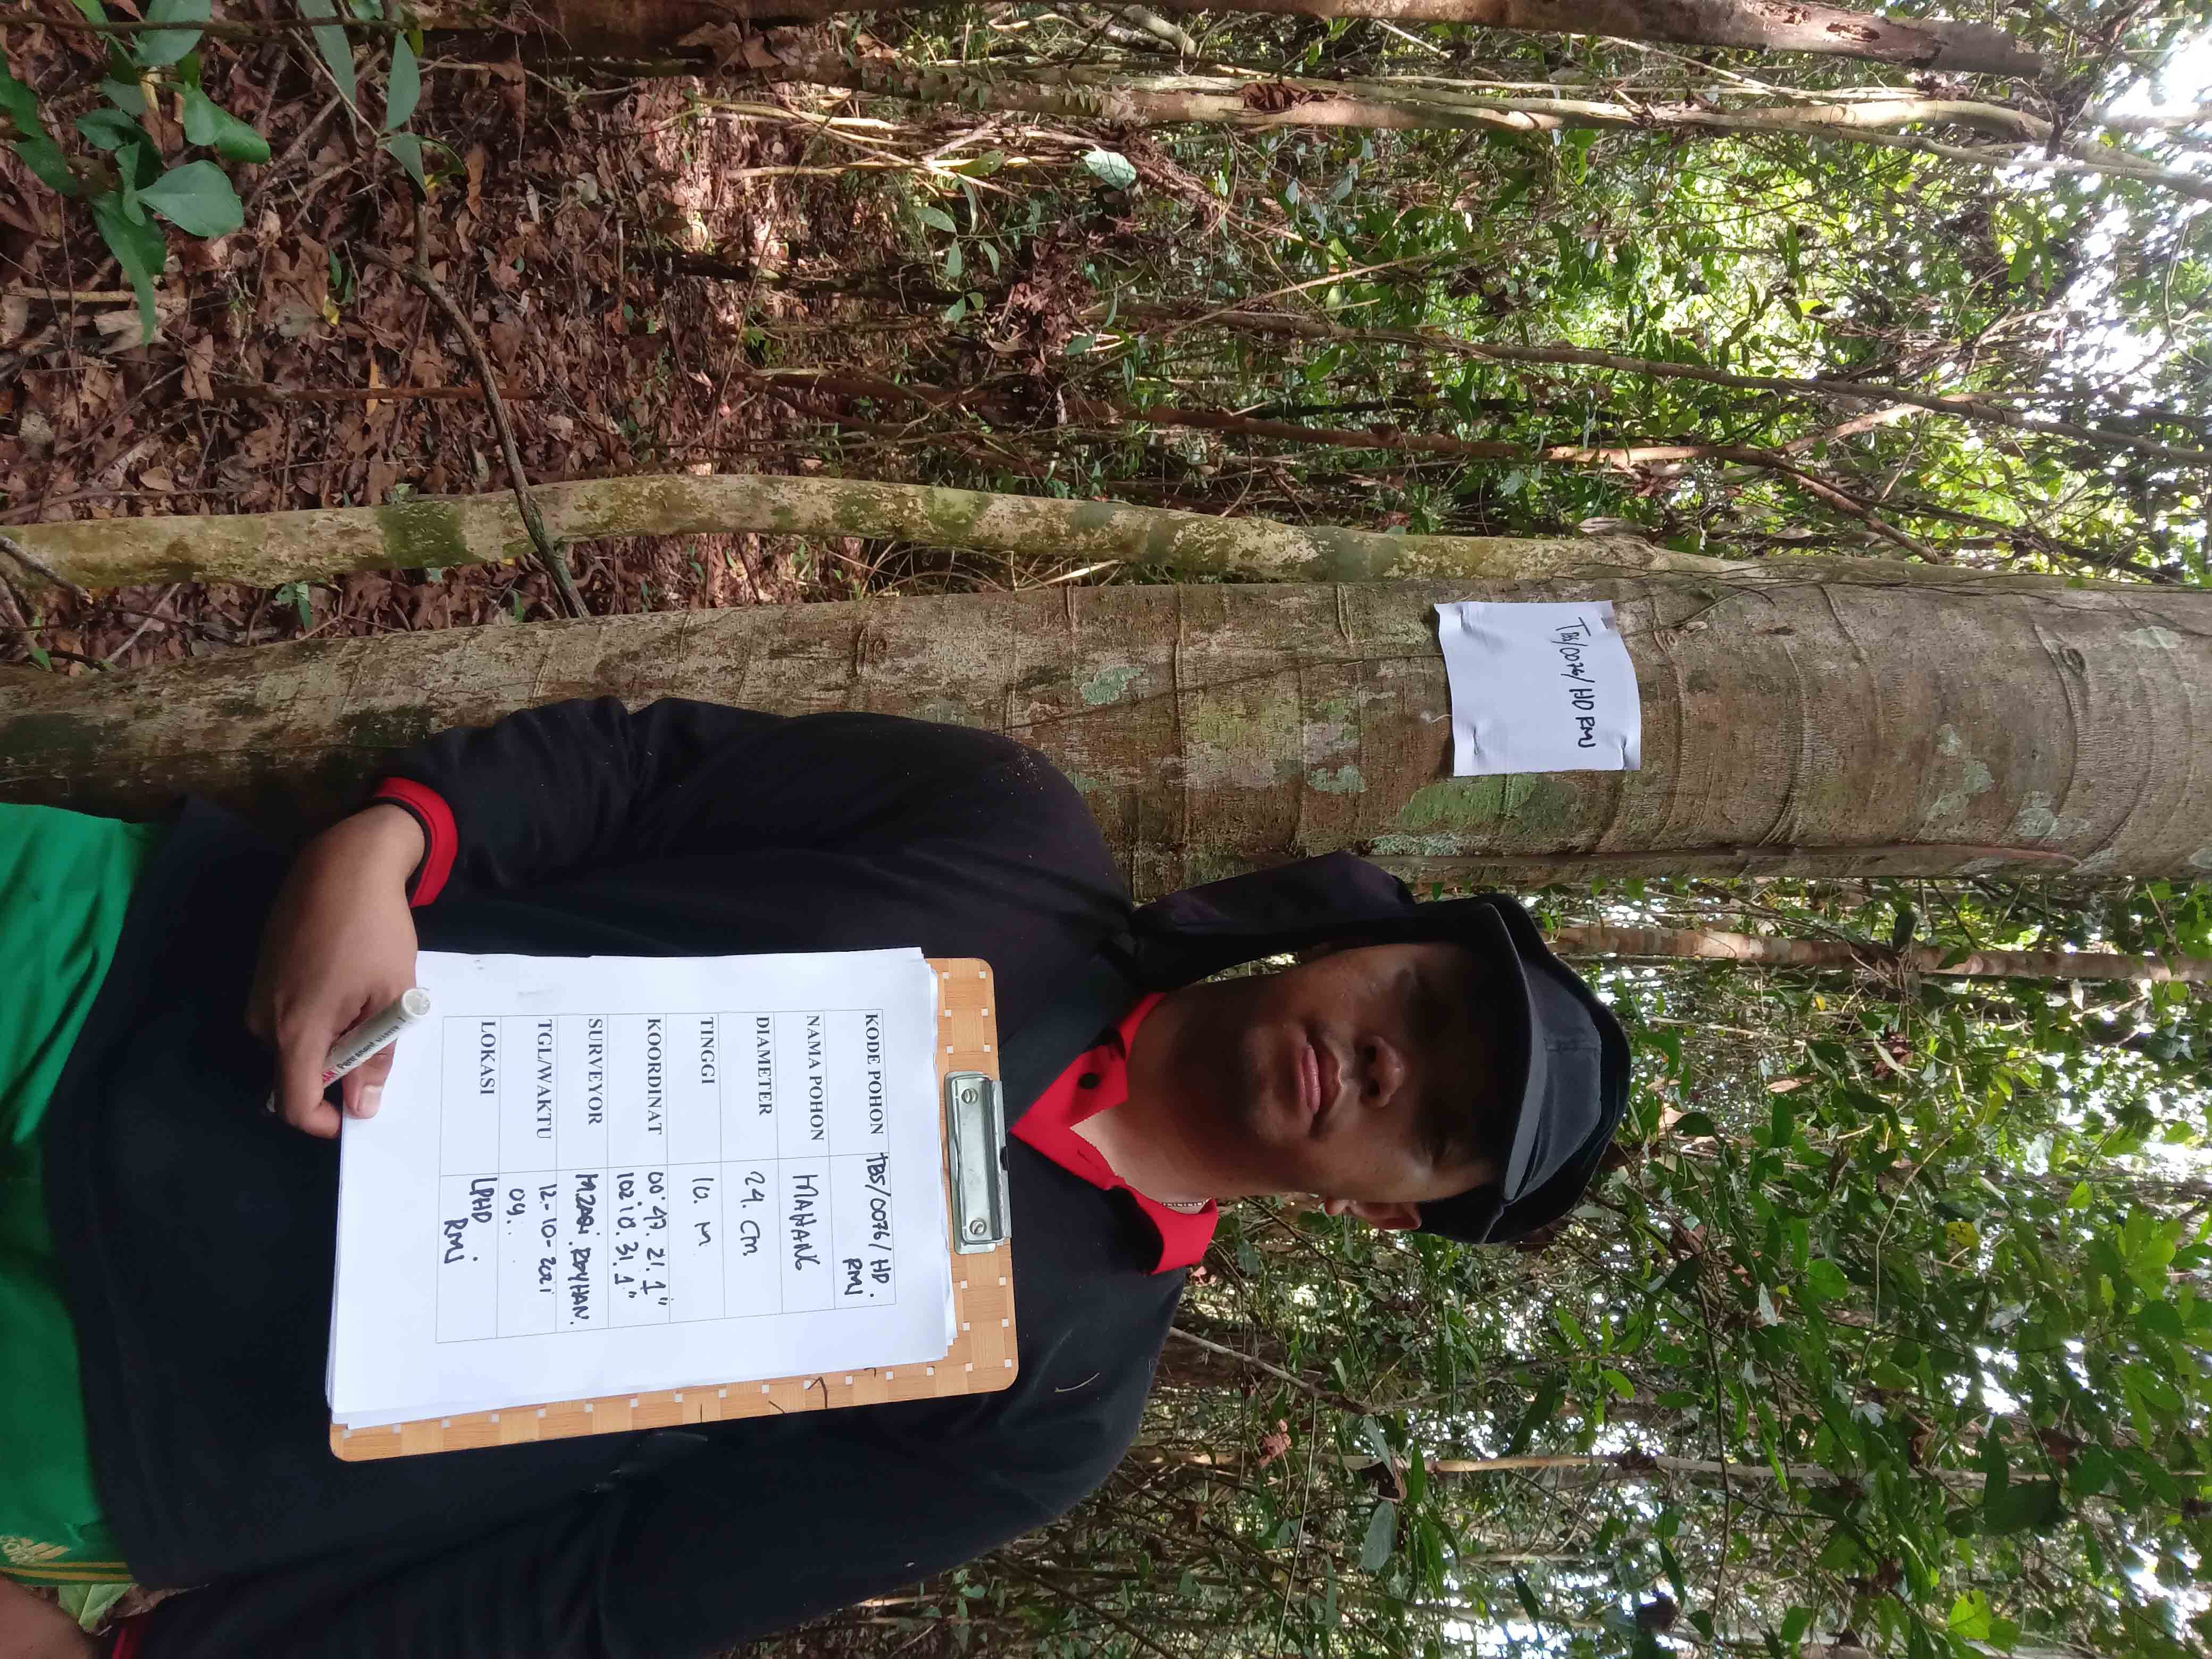 TBS/0076/HD RMJ
KODE POHON TBS/0076/ HD.
RMJ
NAMA POHON MAHANG
DIAMETER 24. CM
TINGGI 10. M
KOORDINAT 00°47. 21. 1"
102°10. 31. 1"
SURVEYOR M.ZAQi. RAYHAN.
TGL/WAKTU 12-10-2021
09..
LOKASI LPHD
RMJ